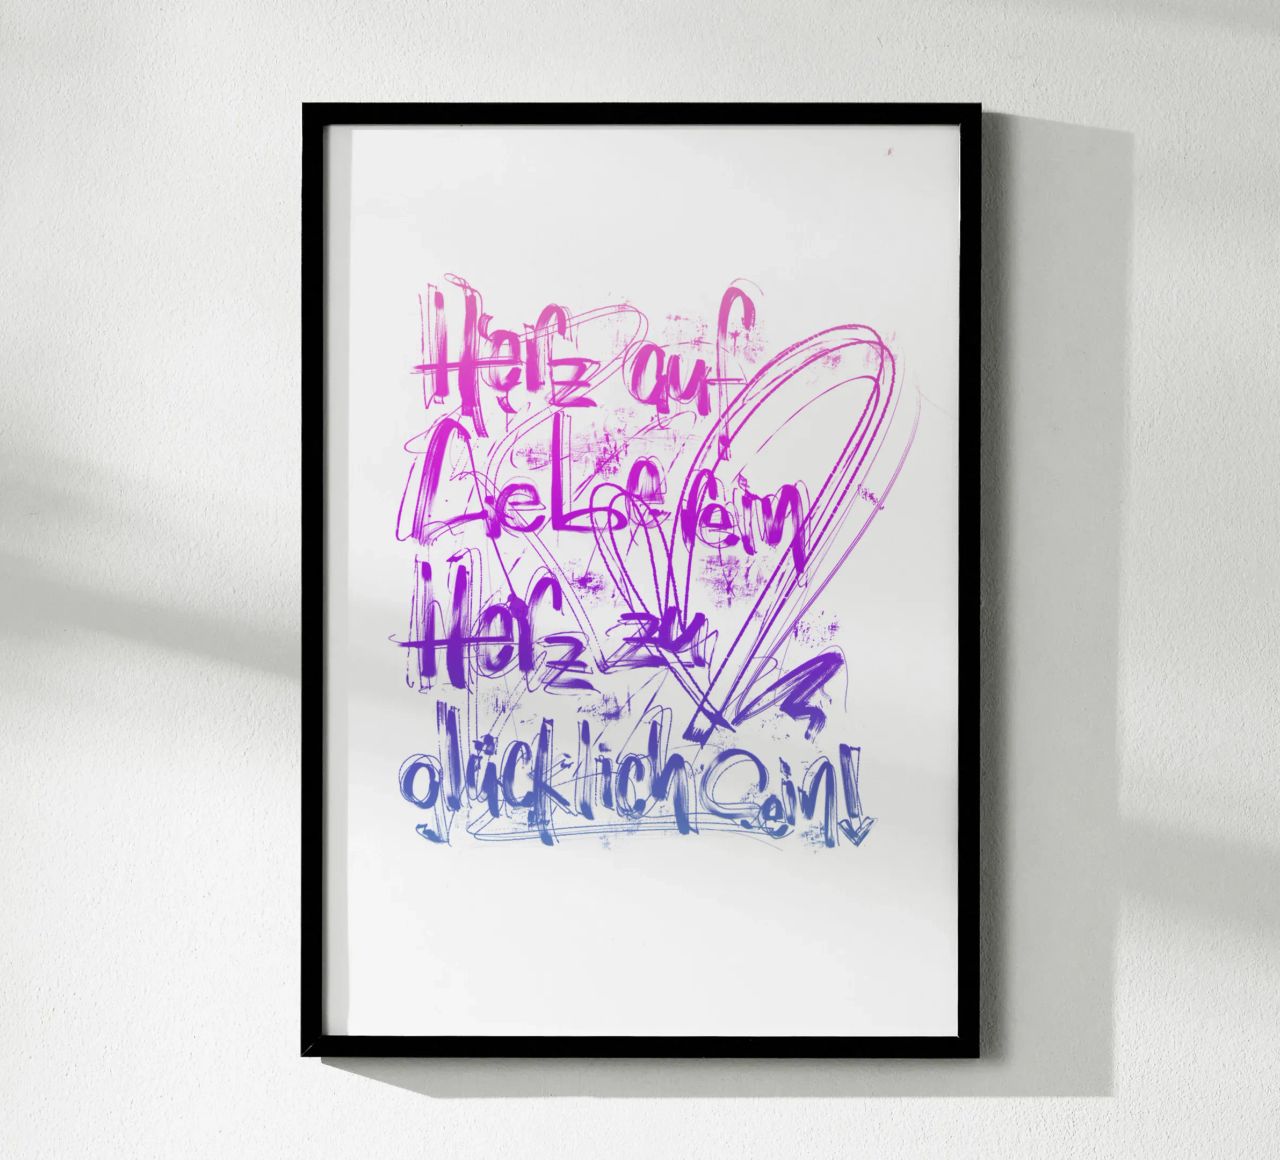 Herz auf
Liebe rein
Herz zu
glücklich Sein!